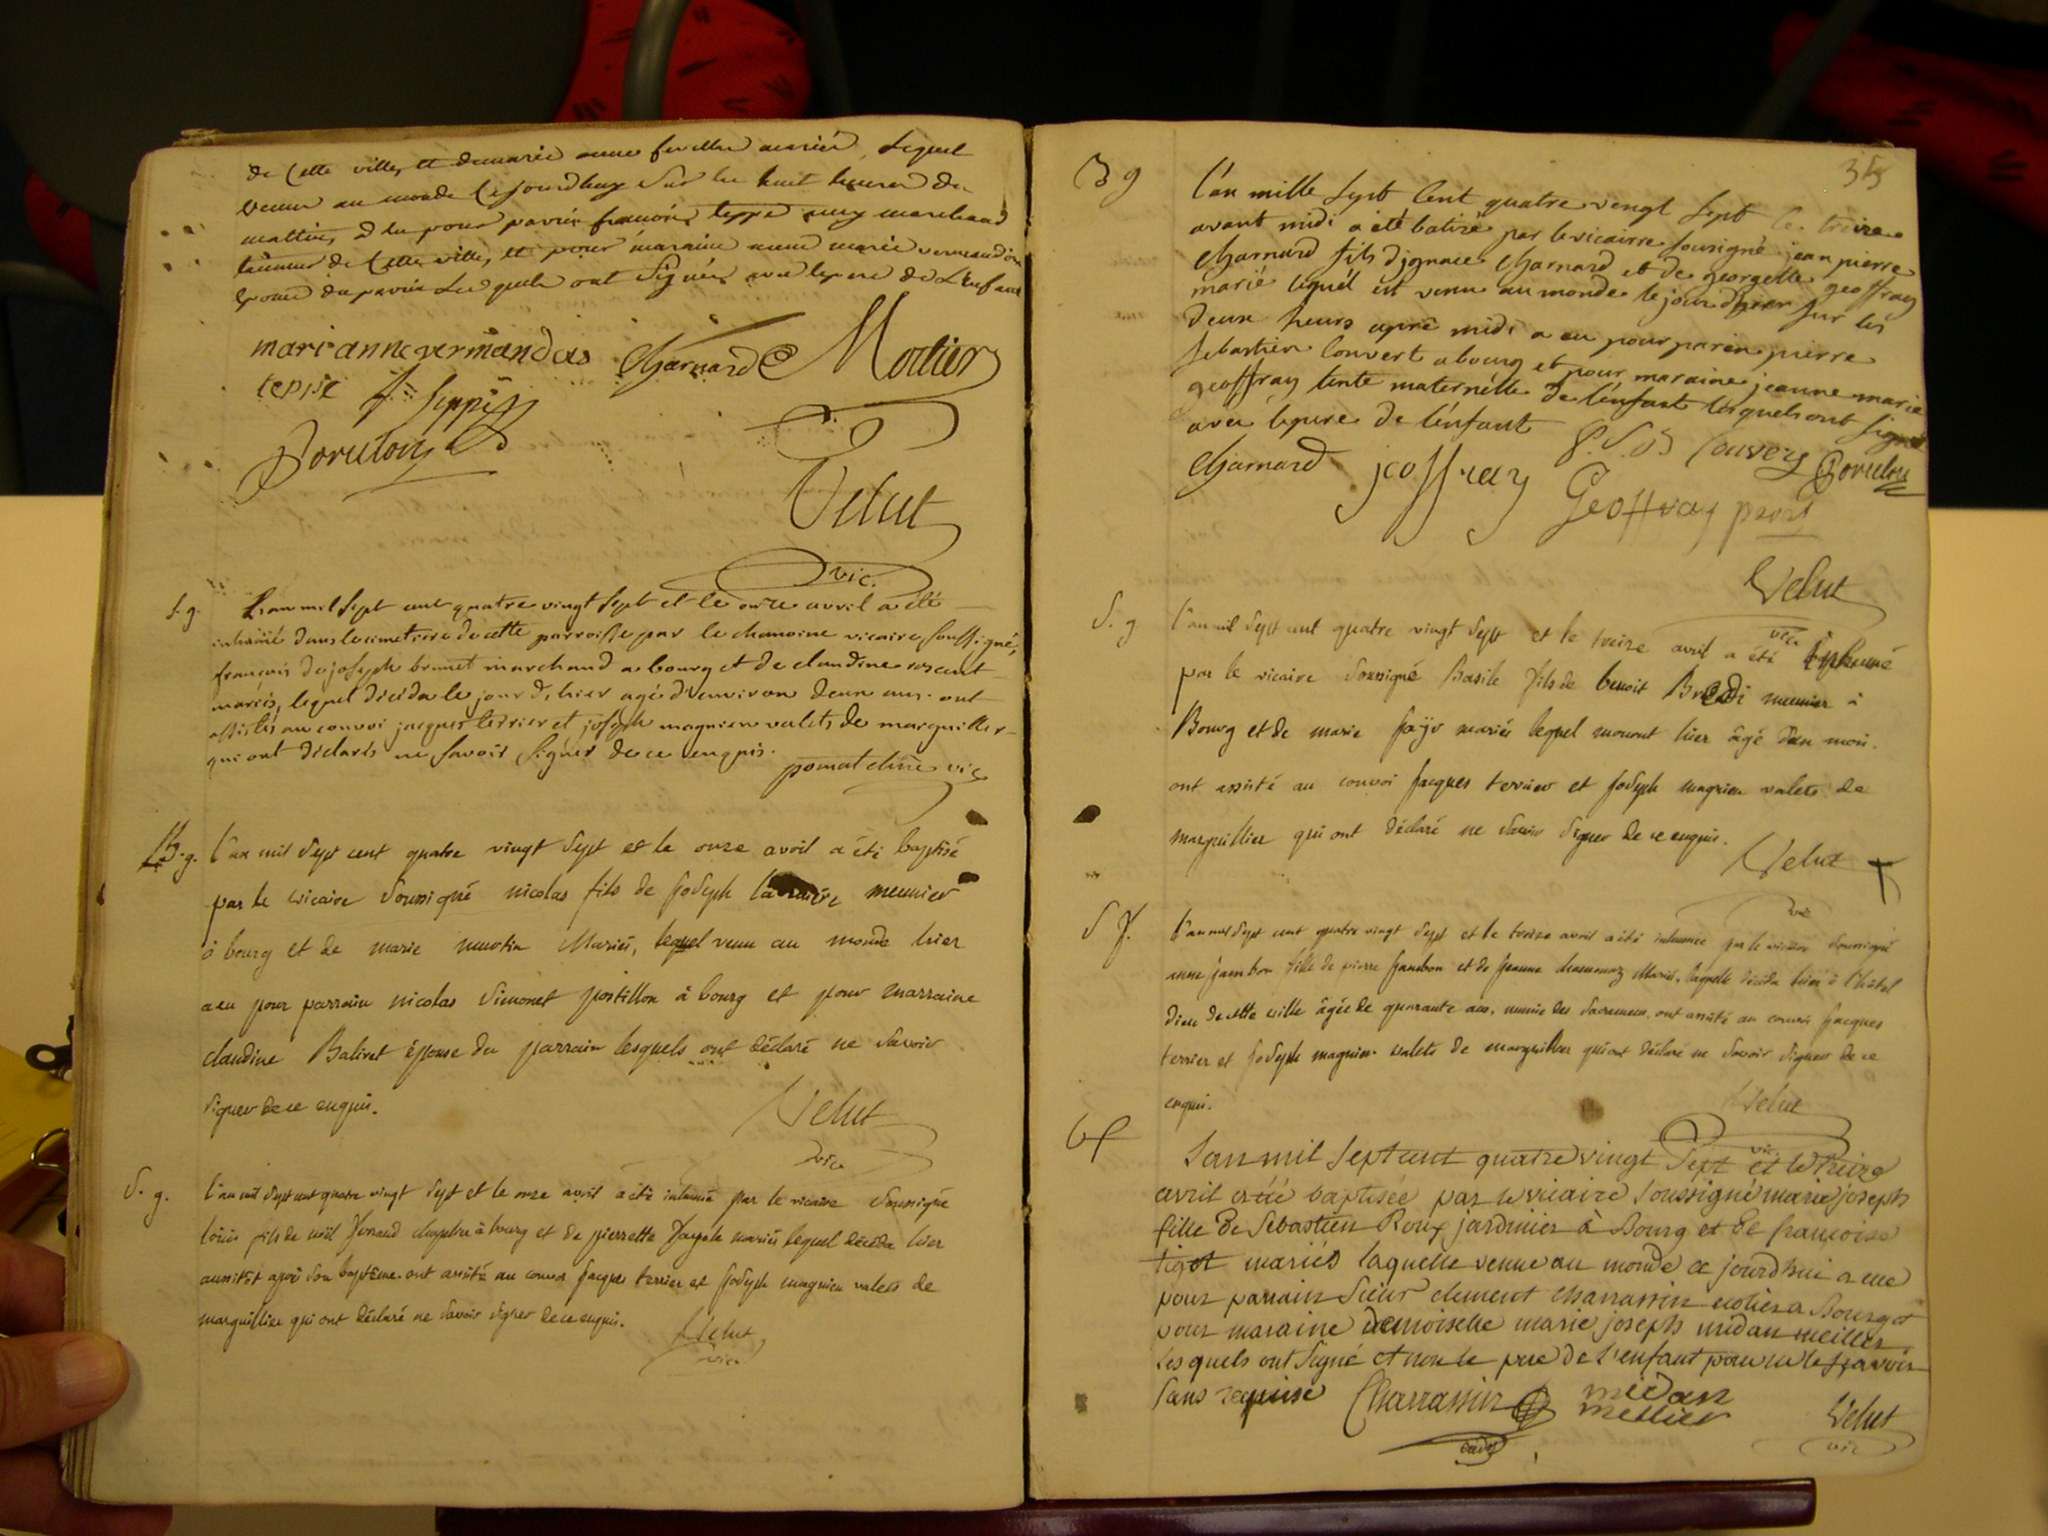 de Cette ville, et demarie anne lequel
venu au monde Cejourdhuy Sur les huit heures du
mattin, a eu pour parrin françois teppe marchand
de Cette ville, et pour maraine anne marie
Epouse du parrin Les quels ont Signés avec le pere de L'enfant
mari anne vermandois Charnard Mortier
teppe f teppe
Velut
vic.
S. g. L'an mil Sept cent quatre vingt Sept et le onze avril a été
inhumé dans le cimetiere de cette parroisse par le chanoine vicaire soussigné,
françois de joseph brunet marchand a bourg et de claudine
mariés, lequel décéda le jour d'hier agé d'environ deux ans. ont
assistés au convoi jacques terrier et joseph magnien valets de marguiller
qui ont déclarés ne savoir signer de ce enquis.
vic
B. g. L'an mil Sept cent quatre vingt Sept et le onze avril a été baptisé
par le vicaire Soussigné nicolas fils de Joseph meunier
à bourg et de marie Mariés, lequel venu au monde hier
a eu pour parrain nicolas Simonet postillon à bourg et pour marraine
claudine Baliret épouse du parrain lesquels ont déclaré ne Savoir
Signer de ce enquis.
Velut
vic
S. g. L'an mil Sept cent quatre vingt Sept et le onze avril a été inhumé par le vicaire Soussigné
Loüis fils de noël à bourg et de pierrette mariés lequel décéda hier
aussitôt après Son baptême. ont assisté au convoi Jacques terrier et Joseph magnien valets de
marguillier qui ont déclaré ne Savoir Signer de ce enquis.
Velut
vic.
35
B g L'an mille Sept Cent quatre vengt Sept le treize
avant midi a été batizé par le vicairre Sousigné jean pierre
Charnard fils d'ignace Charnard et de georgette geoffray
marié lequél est venu au monde le jour d'hier sur les
deux heurs aprê midi a eu pour parein pierre
sebastien Couvert a bourg et pour maraine jeanne marie
geoffray tente maternélle de l'énfant lesquels ont signé
avec le pere de l'énfant P. S. Couvert
Charnard jeoffray Geoffray
Velut
vic
S. g L'an mil Sept cent quatre vingt Sept et le treize avril a été inhumé
par le vicaire Soussigné Basile fils de benoit meunier à
Bourg et de marie mariés lequel mourut hier âgé d'un mois.
ont assisté au convoi Jacques terrier et Joseph magnien valets de
marguillier qui ont déclaré ne Savoir Signer de ce enquis.
Velut
vic
S f. L'an mil Sept cent quatre vingt Sept et le treize avril a été inhumée par le vicaire Soussigné
anne jambon fille de pierre Jambon et de Jeanne Mariés. laquelle décéda hier à l'hôtel
dieu de cette ville âgée de quarante ans, munie des Sacremens. ont assisté au convoi Jacques
terrier et Joseph magnien valets de marguillier qui ont déclaré ne Savoir Signer de ce
enquis.
Velut
vic
b f L'an mil Sept cent quatre vingt Sept et le treize
avril a été baptisée par le vicaire Soussigné marie joseph
fille de Sebastien Roux jardinier à Bourg et de françoise
tigot mariés laquelle venue au monde ce jourd'hui a eue
pour parrain Sieur clement charrassin ecolier a Bourg et
pour maraine demoiselle marie joseph midan meillier
Lesquels ont signé et non le pere de l'enfant pour ne le sçavoir
Sans requise Charrassin midan
meillier Velut
vic